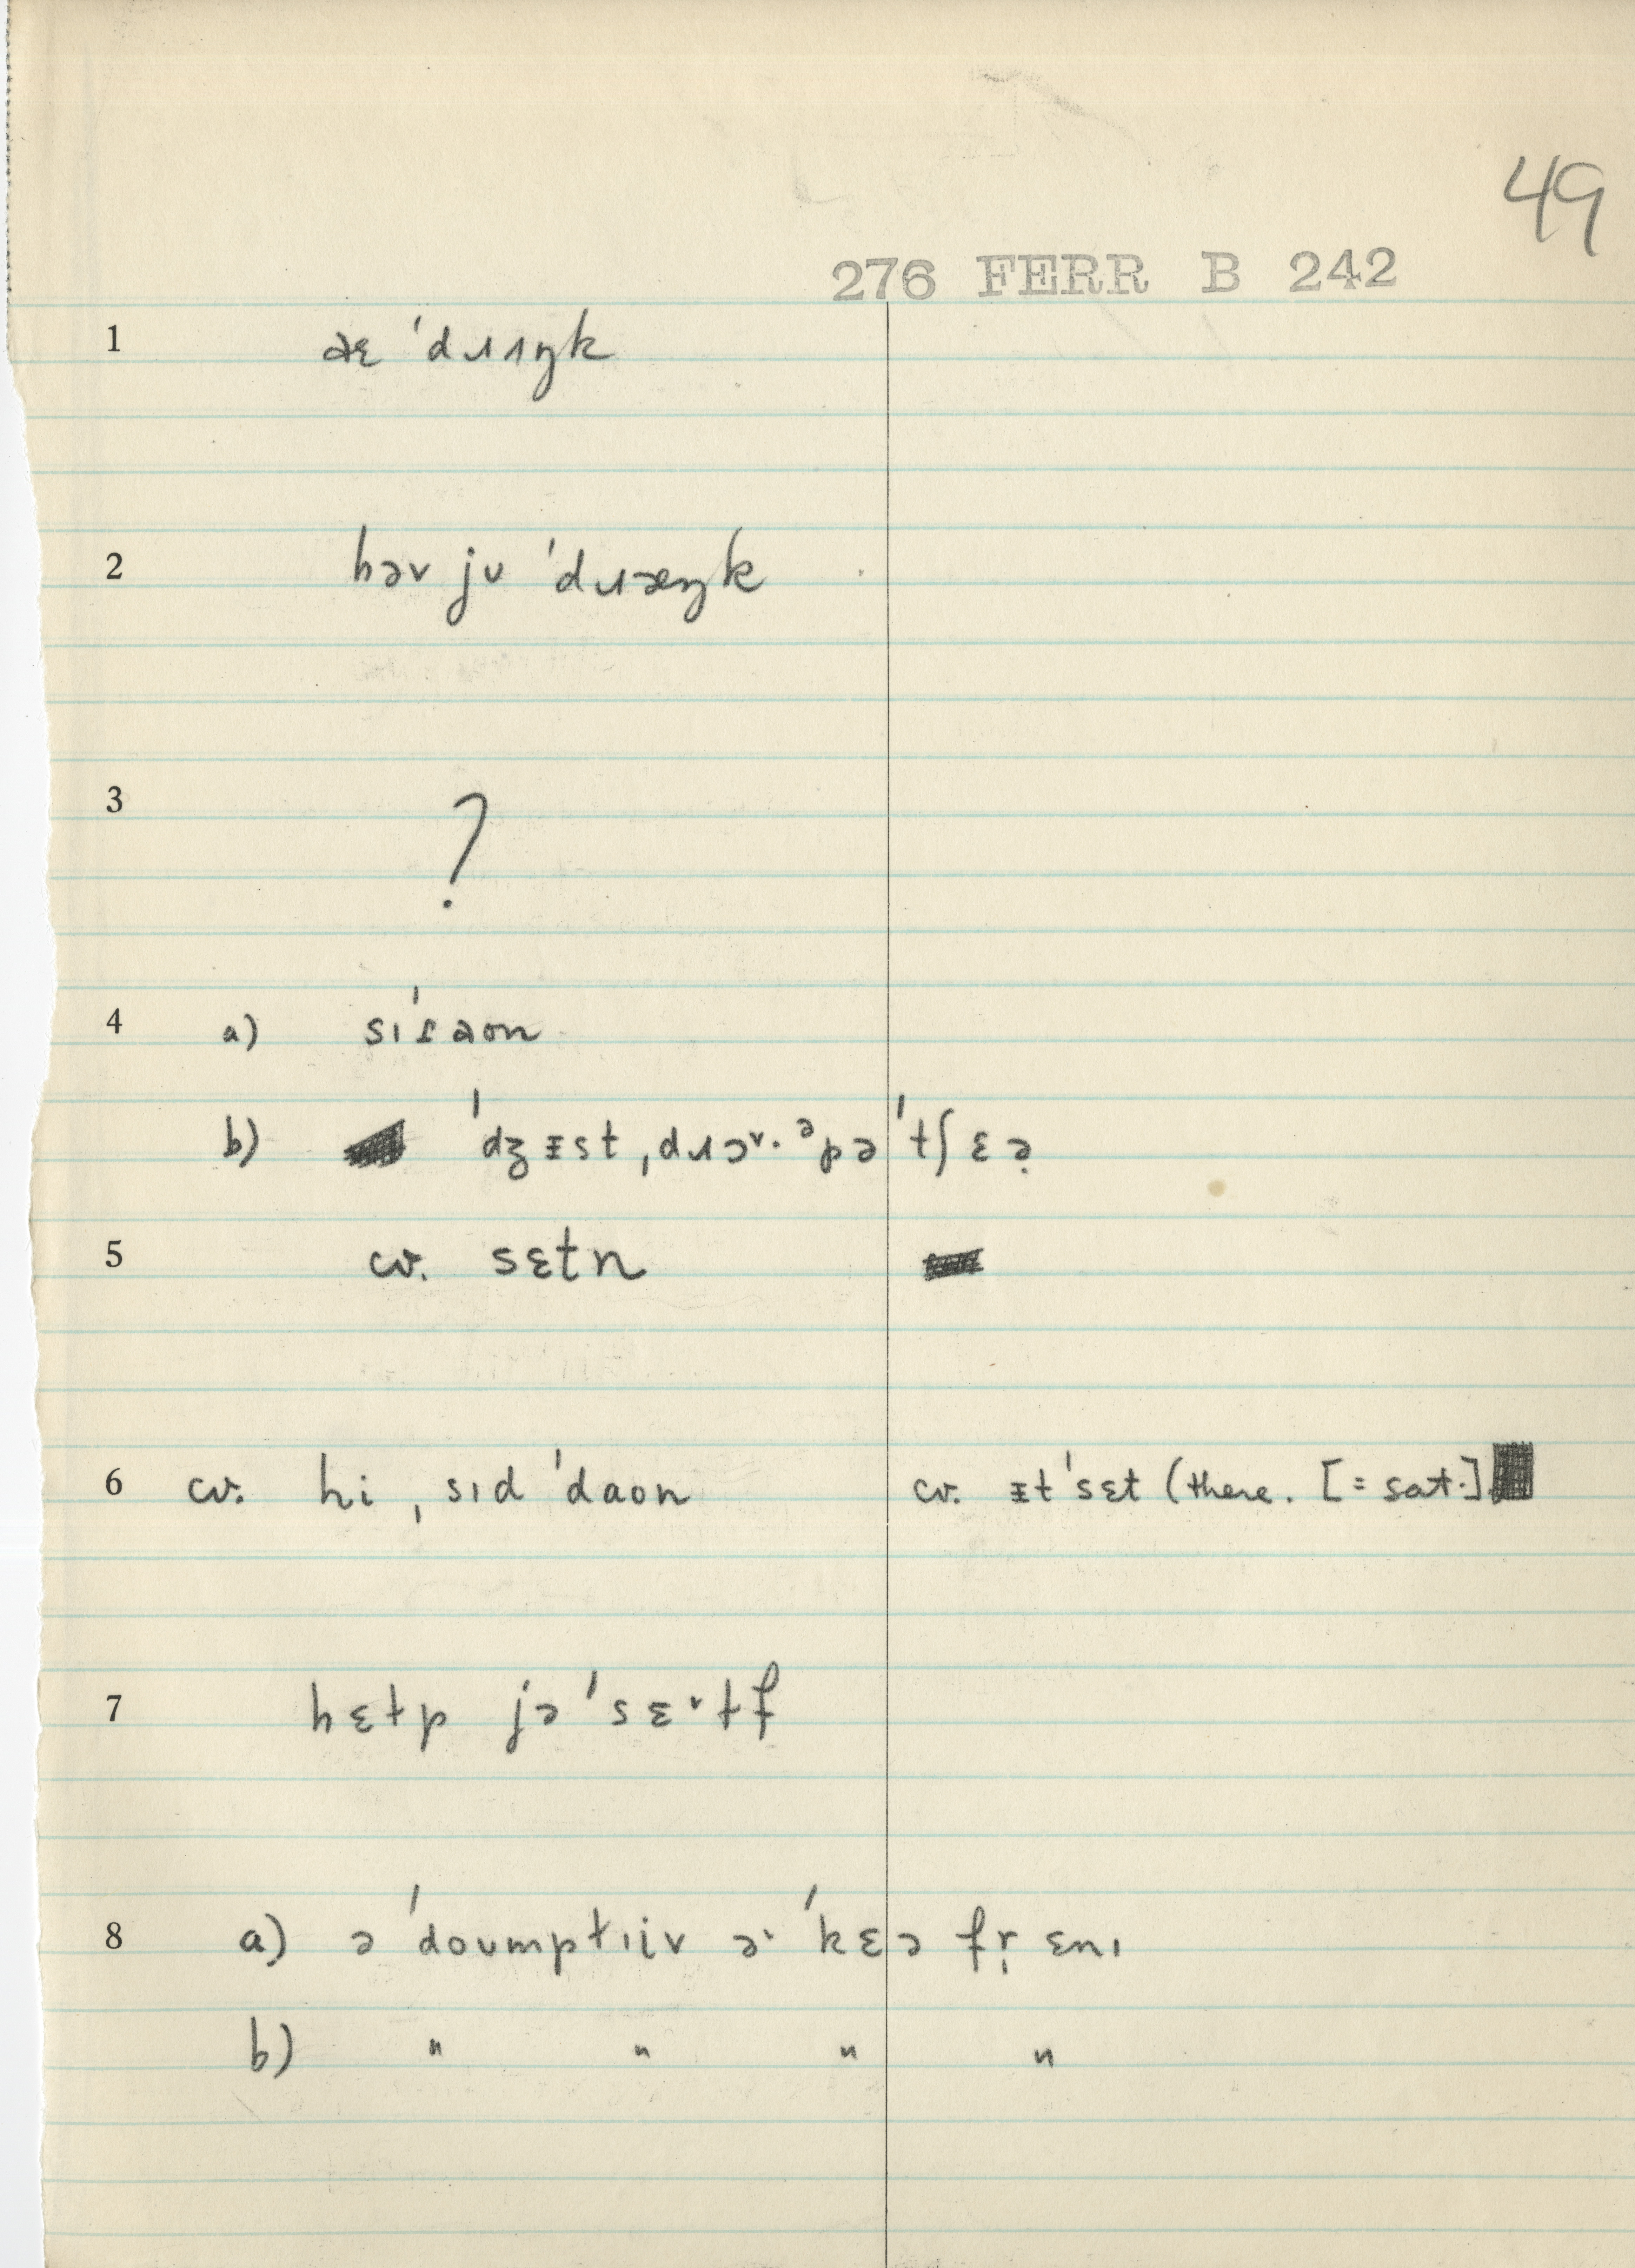 49
276 FERR B 242
1 aɛ ˈdɹɪŋk
2 həv ju ˈdɹæŋk
3 ?
4 a) sɪˈɾaʊn
b) ˈdʒɪst ˌdɹɔᵛ·ᵊpəˈtʃɛə̣
5 cv. sɛtn
6 cv. hi ˌsɪd ˈdaʊn cv. ɪtˈsɛt (there. [= sat.]
7 hɛɫp jəˈsɛᵛɫf
8 a) ə ˈdoʊmpɫɪiv əᵛ ˈkɛə fr̩ ɛnɪ
b) " " " "